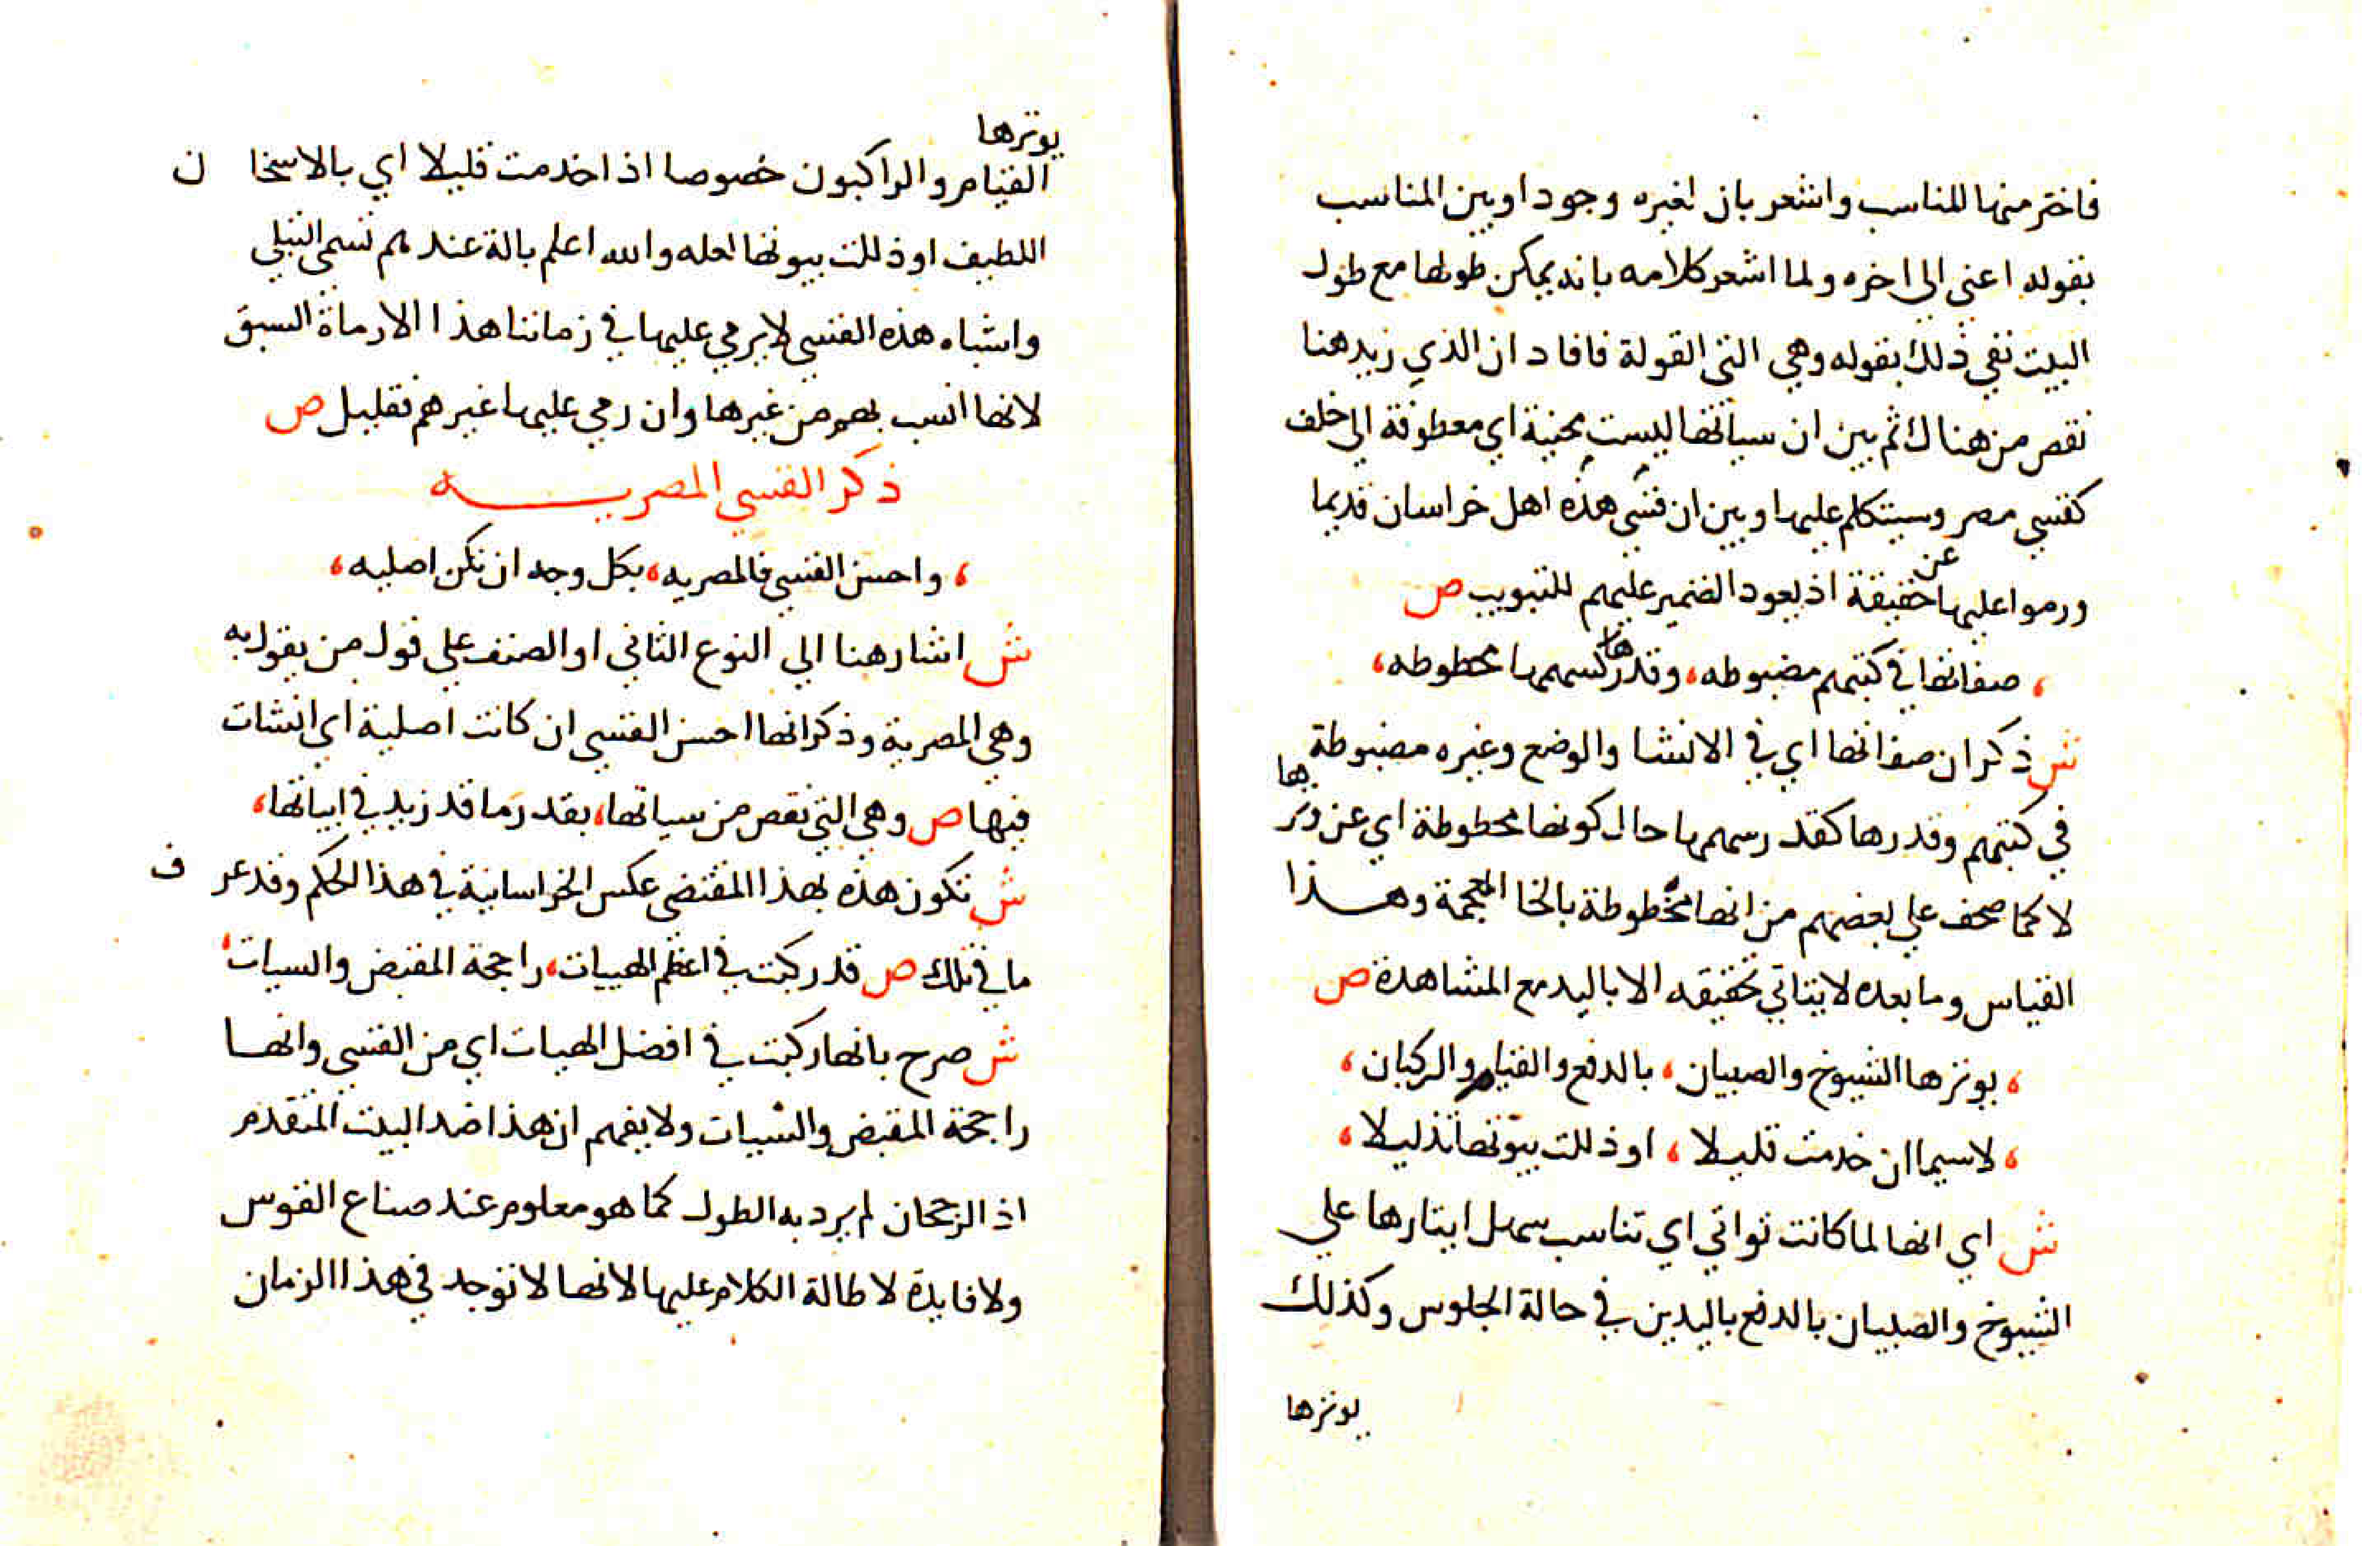 فاختر منها للمناسب واشعر بان لغيره وجودا وبين المناسب
بقوله اعني الى اخره ولما اشعر كلامه بانه يمكن طولها مع طول
البيت نفي ذلك بقوله وهي التي القولة فافاد ان الذي زيد هنا
نقص من هناك ثم بين ان سياتها ليست محنية اي معطوفة الى خلف
كقسي مصر وسيتكلم عليها وبين ان قسي هذه اهل خراسان قديما
ورموا عليها عن حقيقة اذ يعود الضمير عليهم للتبويب ص
، صفاتها في كتبهم مضبوطه، وقدرها كسهمها محطوطه،
ش ذكر ان صفاتها اي في الانشا والوضع وغيره مضبوطة
في كتبهم وقدرها كقدر سهمها حال كونها محطوطة اي عن وترها
لا كما صحف علي بعضهم من انها مخطوطة بالخا المعجمة وهذا
القياس وما بعده لا يتاتي تحقيقه الا باليد مع المشاهدة ص
، يوترها الشيوخ والصبيان، بالدفع والقيام والركبان،
، لاسيما ان خدمت قليلا، اوذللت بيوتها تذليلا،
ش اي انها لما كانت تواتي اي تناسب سهل ايتارها علي
الشيوخ والصبيان بالدفع باليدين في حالة الجلوس وكذلك
يوترها
يوترها
القيام والراكبون خصوصا اذا خدمت قليلا اي بالاسخان
اللطيف اوذللت بيوتها لعله والله اعلم بالة عندهم تسمي النبلي
واشباه هذه القسي لا يرمي عليها في زماننا هذا الا رماة السبق
لانها انسب بهم من غيرها وان رمي عليها غيرهم فقليل ص
ذكر القسي المصريه
، واحسن القسي فالمصريه، بكل وجه ان تكن اصليه،
ش اشار هنا الي النوع الثاني او الصنف علي قول من يقول به
وهي المصرية وذكر انها احسن القسي ان كانت اصلية اي انشات
فيها ص وهي التي نقص من سياتها، بقدر ما قد زيد في ابياتها،
ش تكون هذه بهذا المقتضي عكس الخراسانية في هذا الحكم وقد عرف
ما في تلك ص قد ركبت في اعظم الهيات، راجحة المقبض والسيات،
ش صرح بانها ركبت في افضل الهيات اي من القسي وانها
راجحة المقبض والسيات ولا يفهم ان هذا ضد البيت المتقدم
اذ الرجحان لم يرد به الطول كما هو معلوم عند صناع القوس
ولا فايدة لاطالة الكلام عليها لانها لا توجد في هذا الزمان